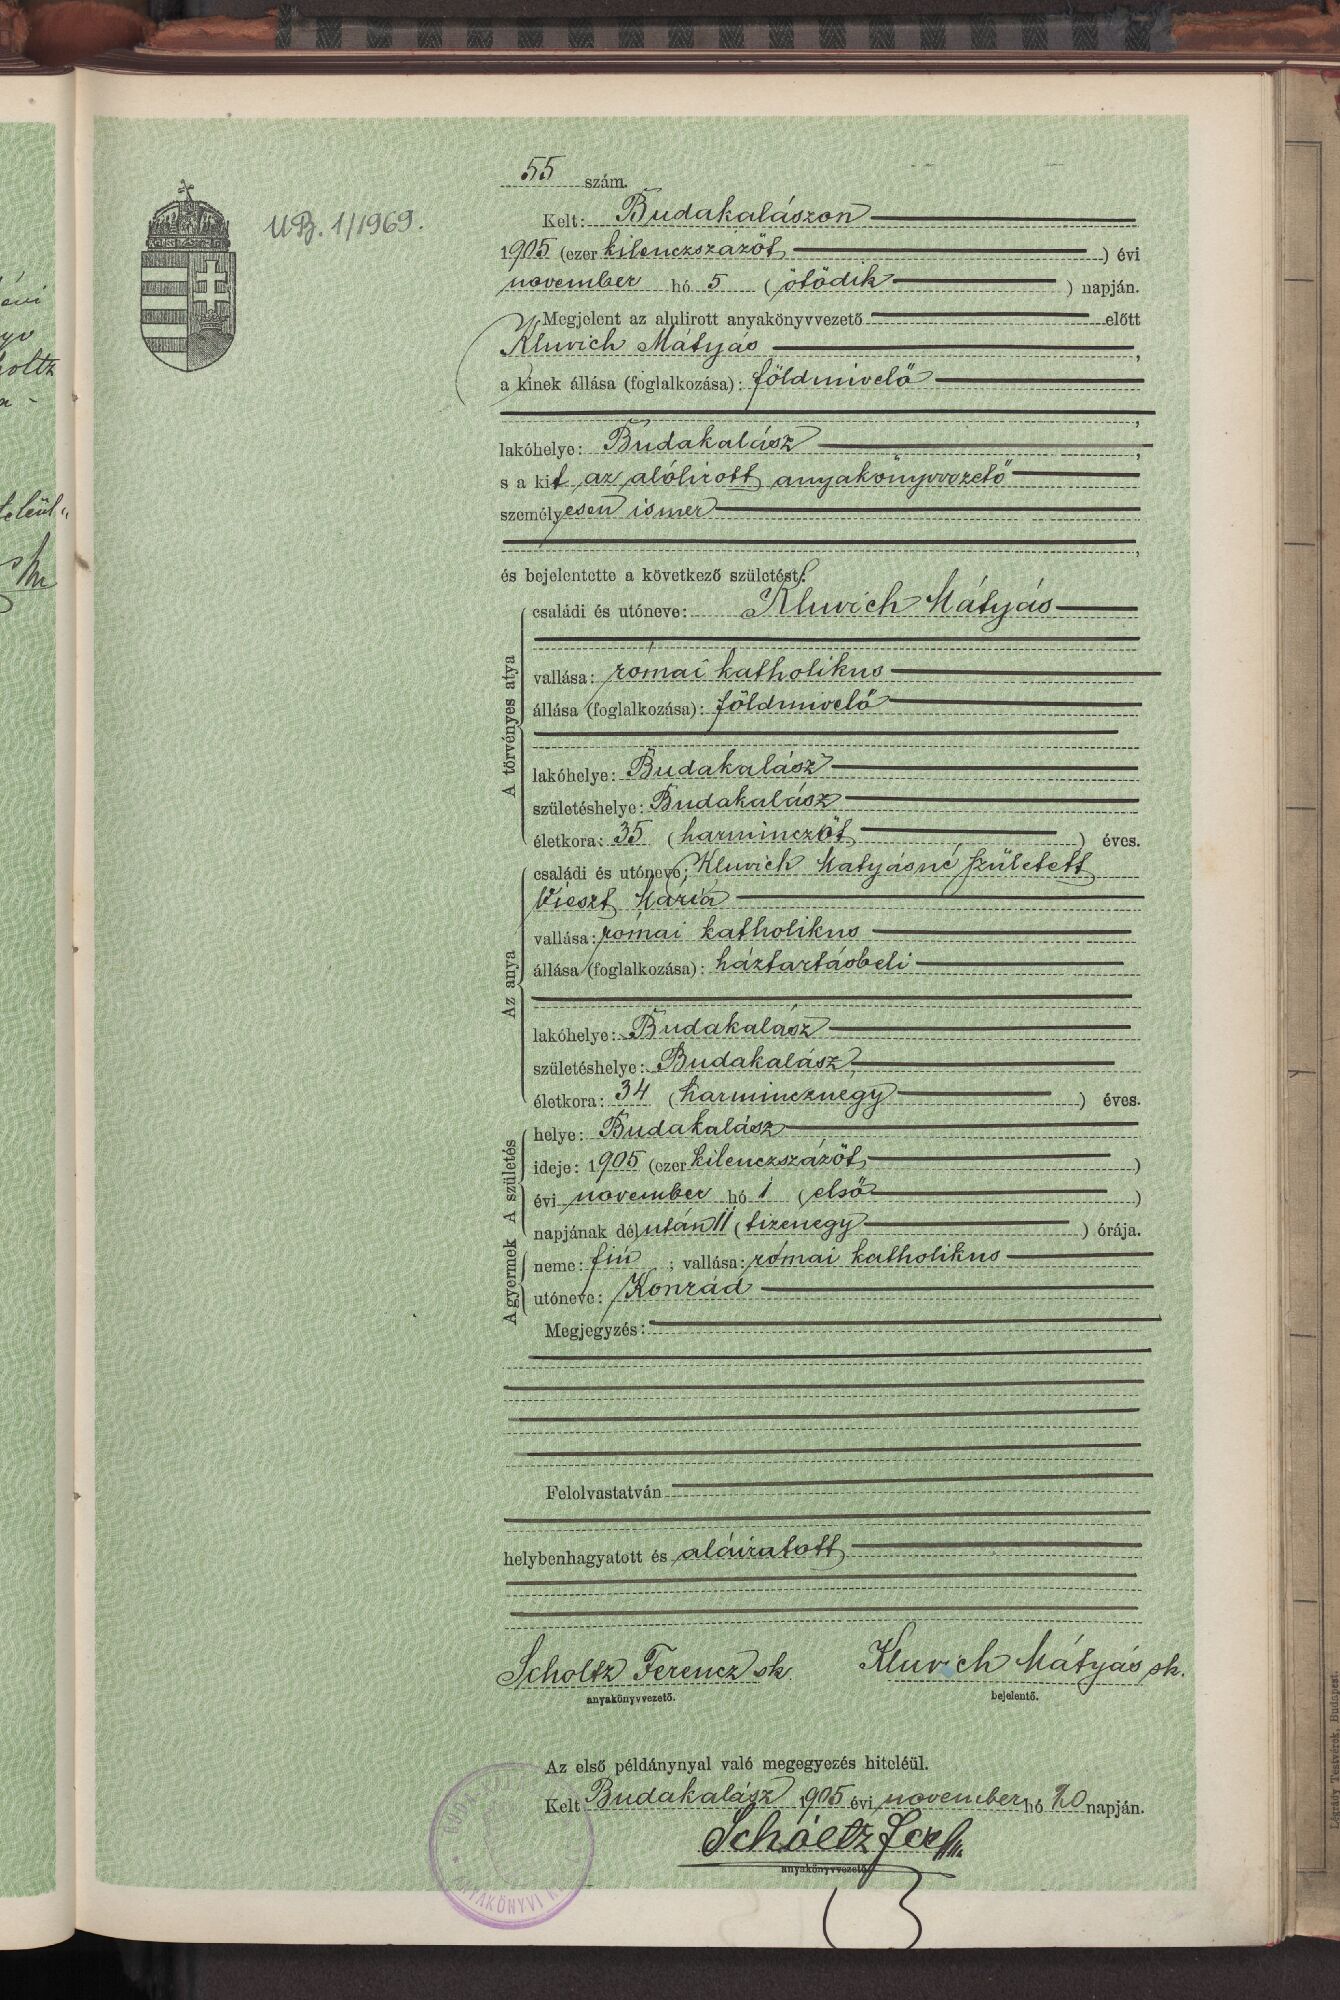 55 szám.
U.B. 1/1969.
Kelt: Budakalászon
1905 (ezer kilenczszázöt) évi
november hó 5 (ötödik) napján.
Megjelent az alulirott anyakönyvvezető előtt
Kluvich Mátyás,
a kinek állása (foglalkozása): földmivelő
,
lakóhelye: Budakalász,
s a kit az alólirott anyakönyvvezető
személyesen ismer
,
és bejelentette a következő születést:
A törvényes atya
családi és utóneve: Kluvich Mátyás
vallása: római katholikus
állása (foglalkozása): földmivelő
lakóhelye: Budakalász
születéshelye: Budakalász
életkora: 35 (harminczöt) éves.
Az anya
családi és utóneve: Kluvich Mátyásné született
Vieszt Mária
vallása: római katholikus
állása (foglalkozása): háztartásbeli
lakóhelye: Budakalász
születéshelye: Budakalász
életkora: 34 (harmincznegy) éves.
A születés
helye: Budakalász
ideje: 1905 (ezer kilenczszázöt)
évi november hó 1 (első)
napjának délután 11 (tizenegy) órája.
A gyermek
neme: fiú; vallása: római katholikus
utóneve: Konrád
Megjegyzés:
Felolvastatván
helybenhagyatott és aláiratott
Scholtz Ferencz sk. Kluvich Mátyás sk.
anyakönyvvezető. bejelentő.
Az első példánynyal való megegyezés hiteléül.
Kelt Budakalász 1905 évi november hó 20 napján.
Scholtz Fer
anyakönyvvezető